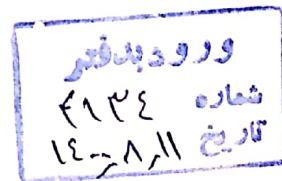 ورود به دفتر
شماره ۴۱۳۴
تاریخ ۱۴۰۰,۸,۱۱